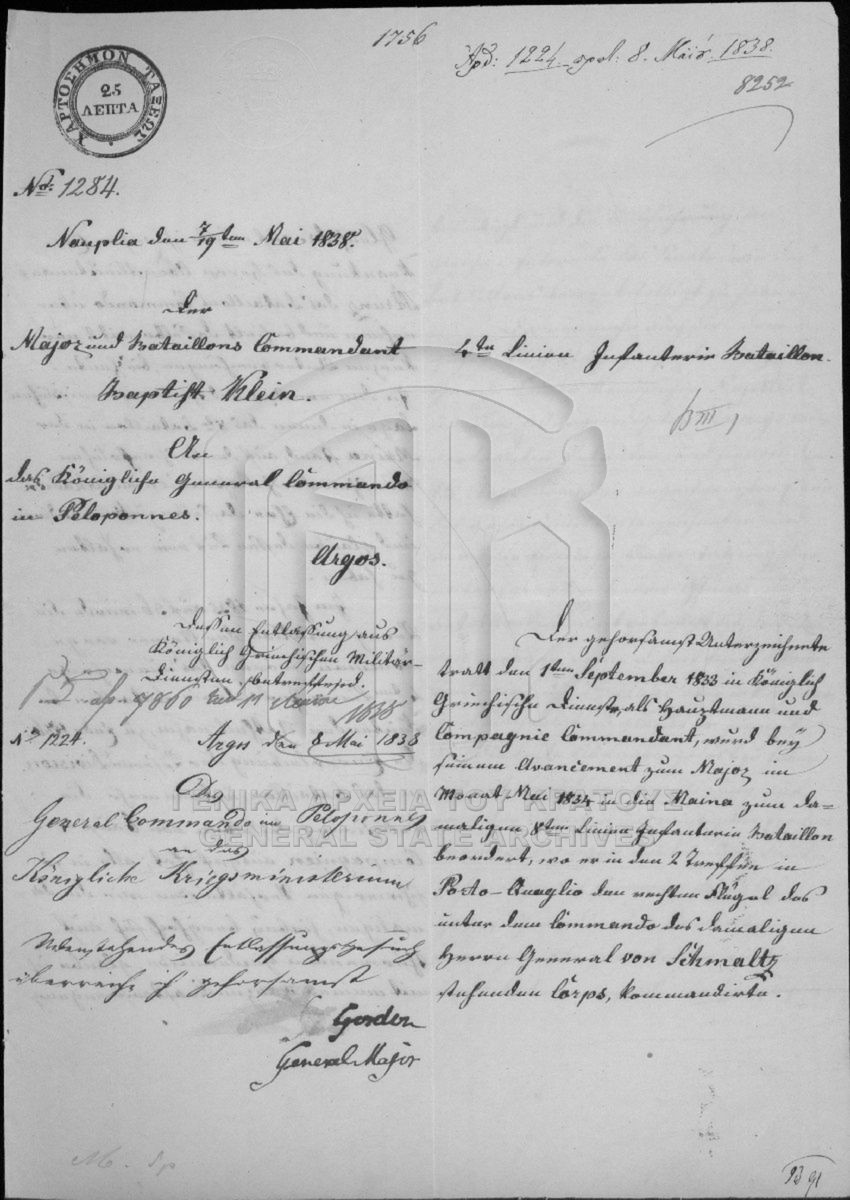 1756
Αριθ: 1224 πρωτ: 8. Μαΐου 1838.
8252
ΧΑΡΤΟΣΗΜΟΝ ΤΑΞΕΩΣ
25
ΛΕΠΤΑ
No. 1284.
Nauplia den 7/19ten Mai 1838.
Der
Major und Bataillons Commandant
Baptist Klein.
4ten Linien Infanterie Bataillon.
An
das Königliche General Commando
in Peloponnes.
Argos.
Dessen Entlassung aus
Königlich Griechischen Militär-
Diensten betreffend.
7860
1838
No 1224. Argos den 8 Mai 1838
Das
General Commando im Peloponnes
an das
Königliche Kriegsministerium
Nebenstehendes Entlassungsgesuch
überreiche ich gehorsamst
Gordon
General Major
Der gehorsamst Unterzeichnete
tratt den 1ten September 1833 in Königlich
Griechische Dienste, als Hauptmann und
Compagnie Commandant, wurd bey
seinem Avancement zum Major im
Monat Mai 1834 in die Maina zum da-
maligen 8ten Linien Infanterie Bataillon
beordert, wo er in den 2 Treffen in
Porto-Quaglio den rechten Flügel des
unter dem Commando des damaligen
Herrn General von Schmaltz
stehenden Corps, kommandirte.
ΓΕΝΙΚΑ ΑΡΧΕΙΑ ΤΟΥ ΚΡΑΤΟΥΣ
GENERAL STATE ARCHIVES